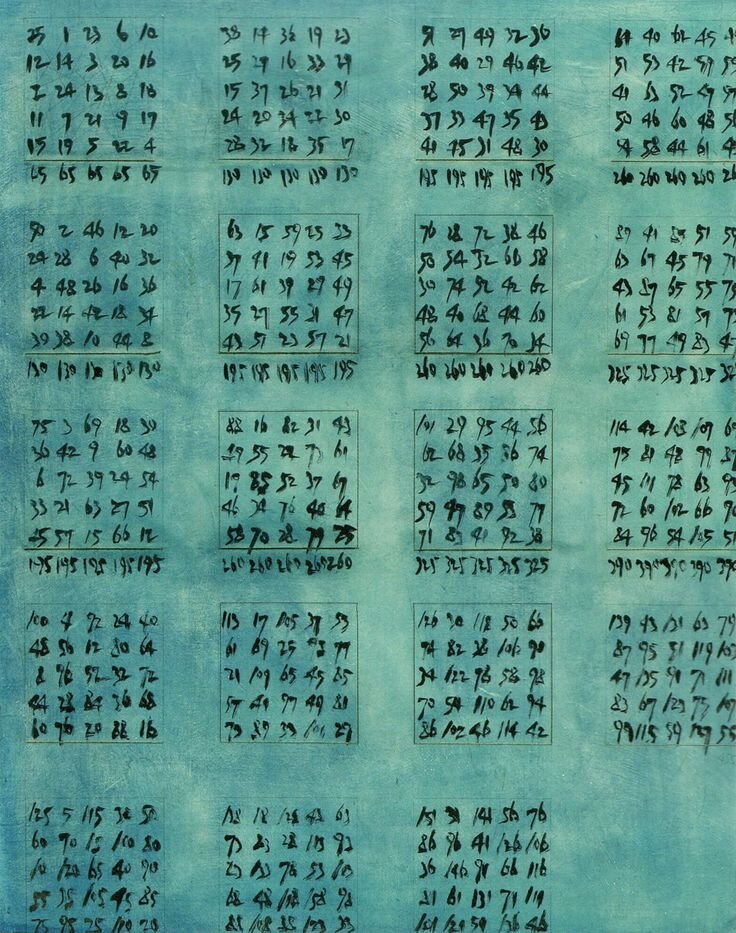 25 1 23 6 10
12 14 3 20 16
2 24 13 8 18
11 7 21 9 17
15 19 5 22 4
65 65 65 65 65
38 14 36 19 23
25 27 16 33 29
15 37 26 21 31
24 20 34 22 30
28 32 18 35 17
130 130 130 130 130
51 27 49 32 36
38 40 29 46 42
28 50 39 34 44
37 33 47 35 43
41 45 31 48 30
195 195 195 195 195
64 40 62 45
51 53 42 59 55
41 63 52 47 57
50 46 60 48 56
54 58 44 61
260 260 260 260
50 2 46 12 20
24 28 6 40 32
4 48 26 16 36
22 14 42 18 34
30 38 10 44 8
130 130 130 130 130
63 15 59 25 33
37 41 19 53 45
17 61 39 29 49
35 27 55 31 47
43 51 23 57 21
195 195 195 195 195
76 28 72 38 46
50 54 32 66 58
30 74 52 42 62
48 40 68 44 60
56 64 36 70 34
260 260 260 260 260
89 41 85 51 59
63 67 45 79 71
43 87 65 55 75
61 53 81 57 73
69 77 49 83 47
325 325 325 325
75 3 69 18 30
36 42 9 60 48
6 72 39 24 54
33 21 63 27 51
45 57 15 66 12
195 195 195 195 195
88 16 82 31 43
49 55 22 73 61
19 85 52 37 67
46 34 76 40 64
58 70 28 79 25
260 260 260 260 260
101 29 95 44 56
62 68 35 86 74
32 98 65 50 80
59 47 89 53 77
71 83 41 92 38
325 325 325 325 325
114 42 108 69
75 81 48 99 87
45 111 78 63 93
72 60 102 66 90
84 96 54 105 51
390 390 390 390 390
100 4 92 24 40
48 56 12 80 64
8 96 52 32 72
44 28 84 36 68
60 76 20 88 16
113 17 105 37 53
61 69 25 93 77
21 109 65 45 85
57 41 97 49 81
73 89 33 101 29
126 30 118 50 66
74 82 38 106 90
34 122 78 58 98
70 54 110 62 94
86 102 46 114 42
139 43 131 63 79
87 95 51 119 103
47 135 91 71 111
83 67 123 75 107
99 115 59 127 55
125 5 115 30 50
60 70 15 100 80
10 120 65 40 90
55 35 105 45 85
75 95 25 110 20
138 18 128 43 63
73 83 28 113 93
23 133 78 53 103
68 48 118 58 98
108 38 123 33
151 31 141 56 76
86 96 41 126 106
36 146 91 66 116
81 61 131 71 111
101 121 51 136 46